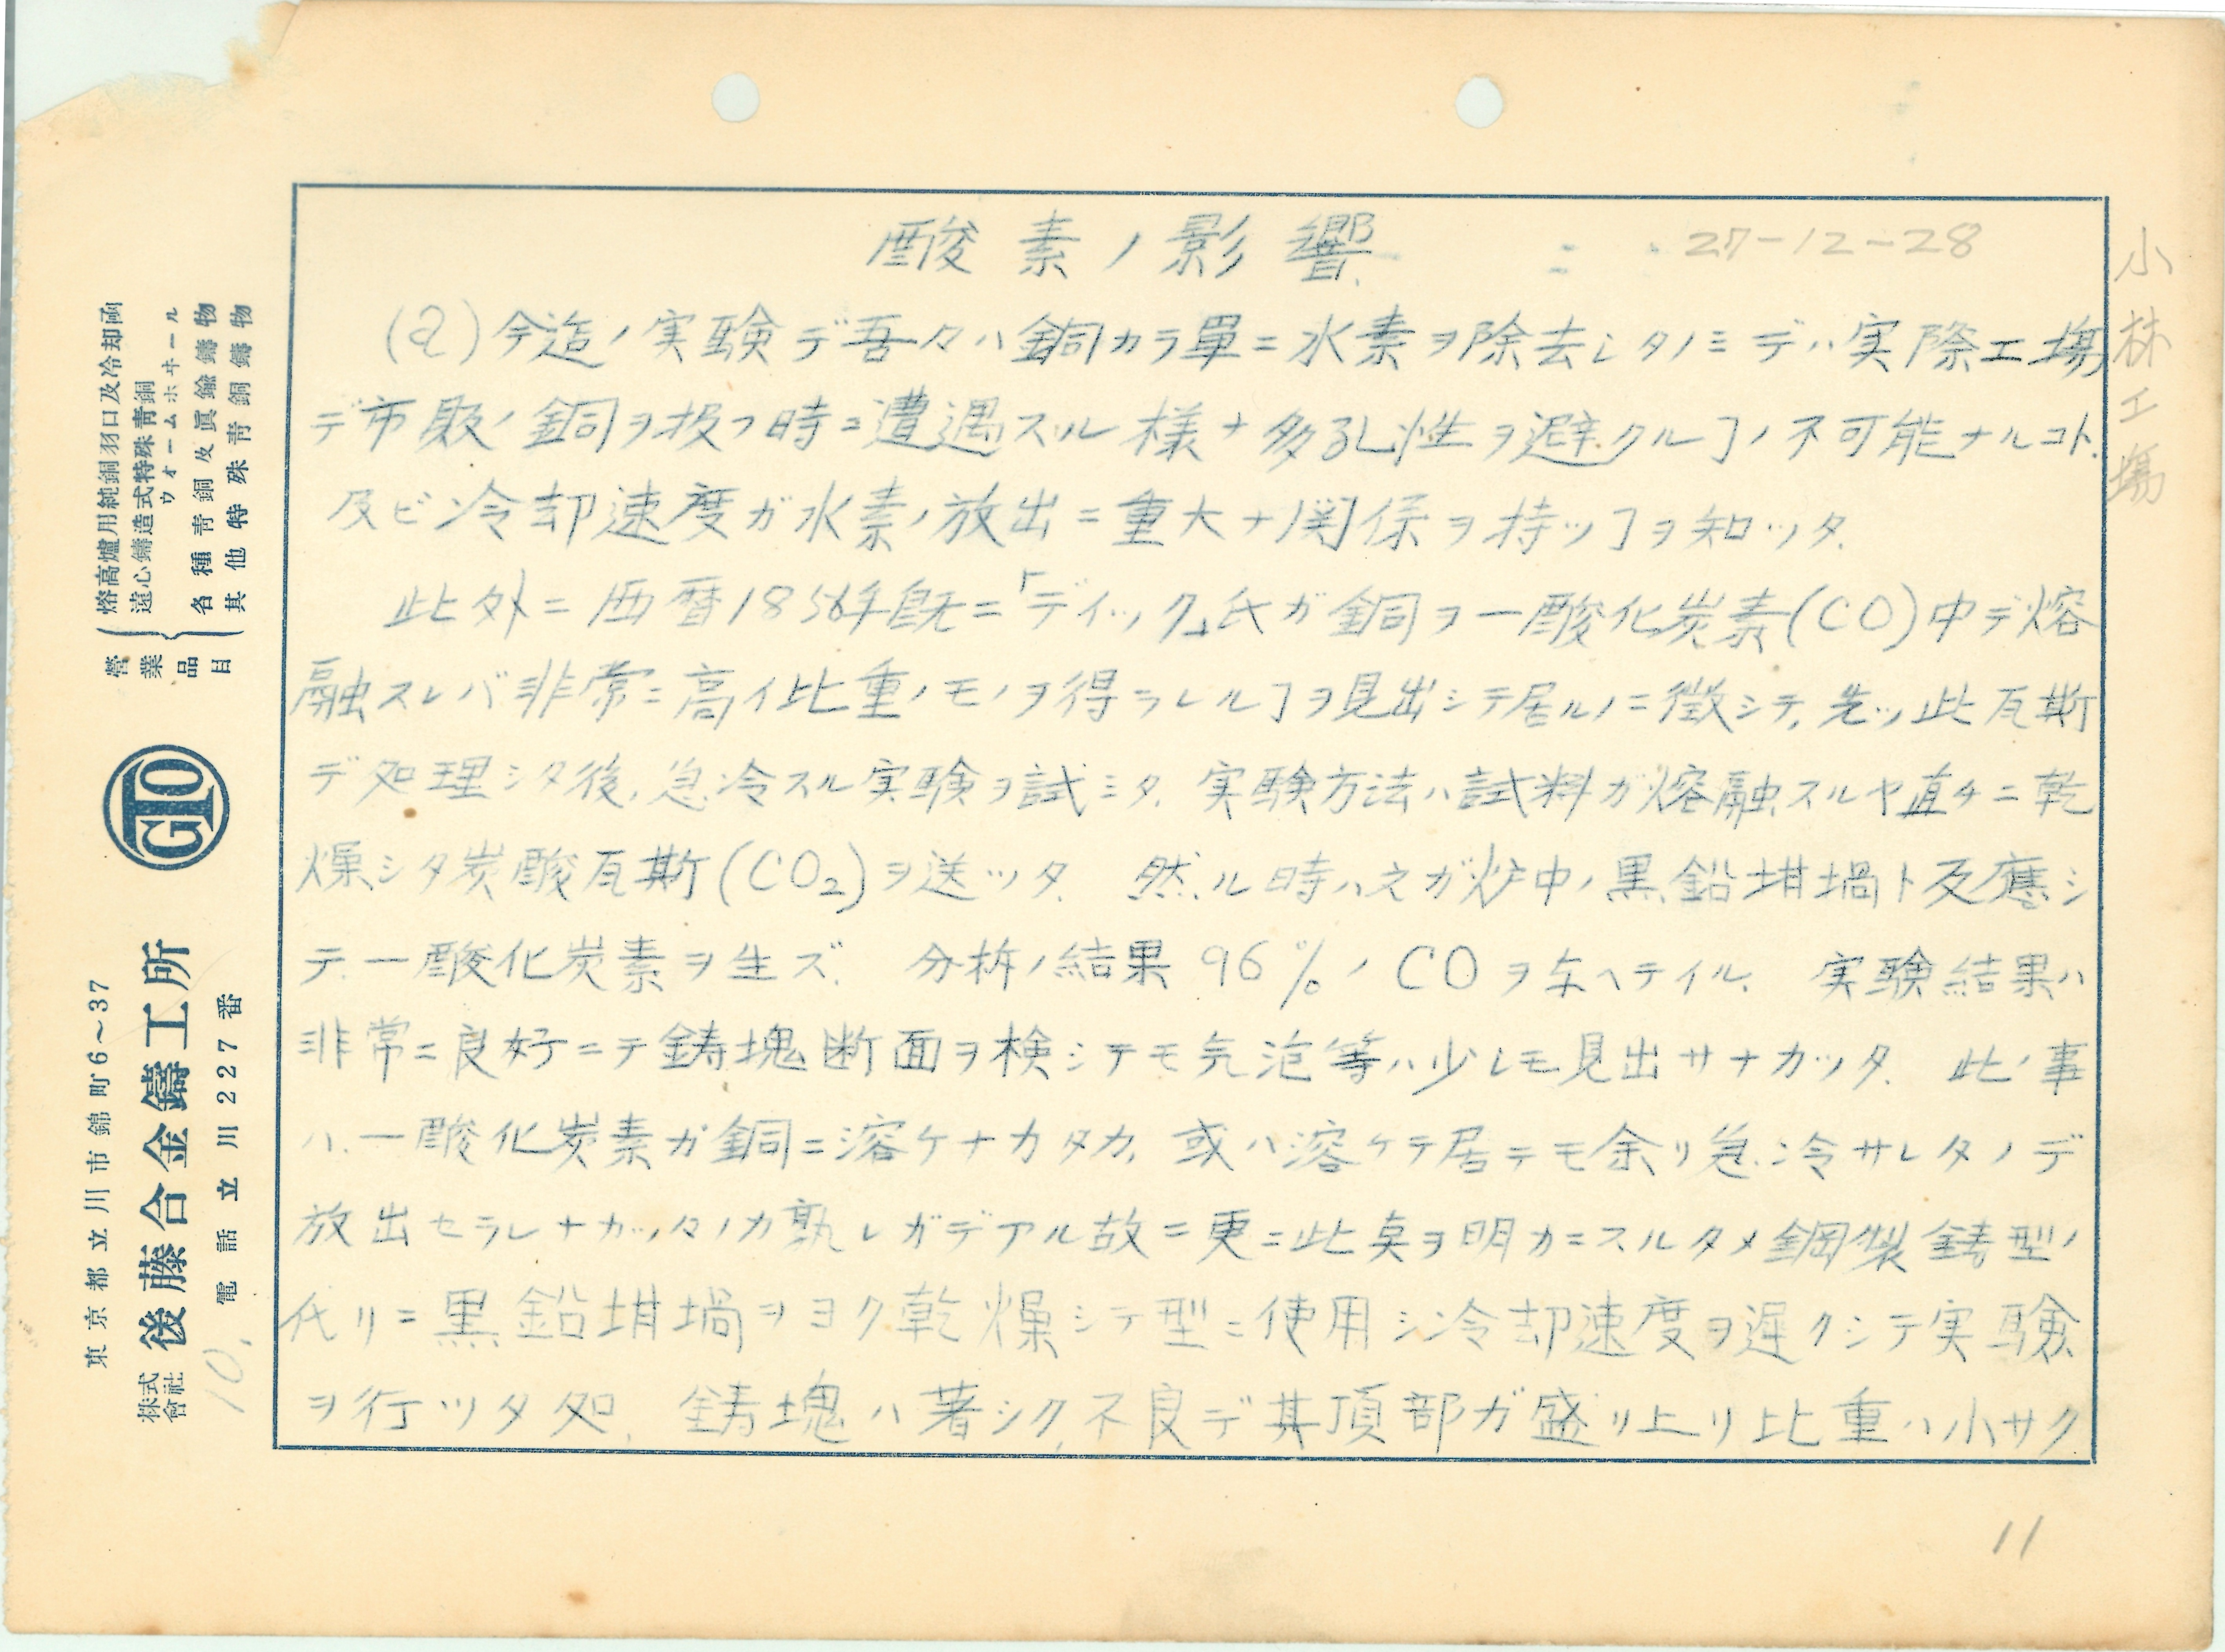 酸素ノ影響.
27-12-28
小林工場
(a)今迄ノ実験デ吾々ハ銅カラ單ニ水素ヲ除去シタノミデハ実際工場
デ市販ノ銅ヲ扱フ時ニ遭遇スル様ナ多孔性ヲ避クルヿノ不可能ナルコト.
及ビ冷却速度ガ水素ノ放出ニ重大ナ関係ヲ持ツヿヲ知ッタ.
此外ニ西暦1856年既ニ「ディック」氏ガ銅ヲ一酸化炭素(CO)中デ熔
融スレバ非常ニ高イ比重ノモノヲ得ラレルヿヲ見出シテ居ルノニ徴シテ,先ッ此瓦斯
デ処理シタ後,急冷スル実験ヲ試ミタ. 実験方法ハ試料ガ熔融スルヤ直チニ乾
燥シタ炭酸瓦斯(CO₂)ヲ送ッタ. 然ル時ハ之ガ炉中ノ黒鉛坩堝ト反應シ
テ.一酸化炭素ヲ生ズ. 分析ノ結果 96%ノ COヲ与ヘテイル. 実験結果ハ
非常ニ良好ニテ鋳塊断面ヲ検シテモ気泡等ハ少シモ見出サナカッタ. 此ノ事
ハ.一酸化炭素ガ銅ニ溶ケナカタカ,或ハ溶ケテ居テモ余リ急冷サレタノデ
放出セラレナカッタノカ孰レガデアル故ニ更ニ此点ヲ明カニスルタメ鋼製鋳型ノ
代リニ黒鉛坩堝ヲヨク乾燥シテ型ニ使用シ冷却速度ヲ遅クシテ実験
ヲ行ッタ処. 鋳塊ハ著シク,不良デ其頂部ガ盛リ上リ比重ハ小サク
11
營業品目
熔高爐用純銅羽口及冷却函
遠心鑄造式特殊靑銅
ウォームホヰール
各種靑銅及眞鍮鑄物
其他特殊靑銅鑄物
GTO
東京都立川市錦町6〜37
株式會社 後藤合金鑄工所
電話立川227番
10.